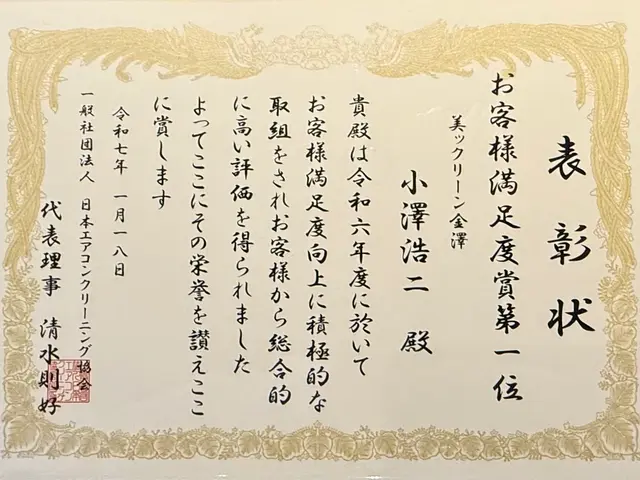 表彰状
お客様満足度賞第一位
美ックリーン金澤
小澤浩二 殿
貴殿は令和六年度に於いて
お客様満足度向上に積極的な
取組をされお客様から総合的
に高い評価を得られました
よってここにその栄誉を讃えここ
に賞します
令和七年 一月一八日
一般社団法人 日本エアコンクリーニング協会
代表理事 清水則好